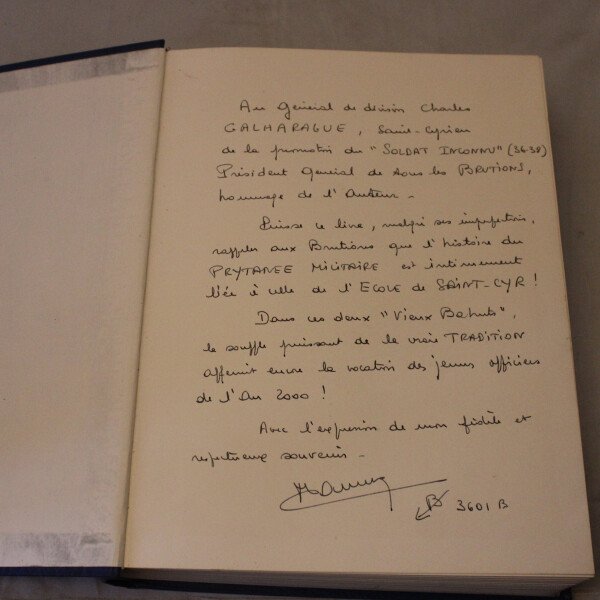 Au Général de division Charles
GALHARAGUE, Saint-Cyrien
de la promotion du "SOLDAT INCONNU" (36-38)
Président Général de tous les BRUTIONS,
hommage de l'Auteur -
Puisse ce livre, malgré ses imperfections,
rappeler aux Brutions que l'histoire du
PRYTANEE MILITAIRE est intimement
liée à celle de l'ECOLE de SAINT-CYR !
Dans ces deux "Vieux Bahuts",
le souffle puissant de la vraie TRADITION
affermit encore la vocation des jeunes officiers
de l'An 2000 !
Avec l'expression de mon fidèle et
respectueux souvenir -
B 3601 B